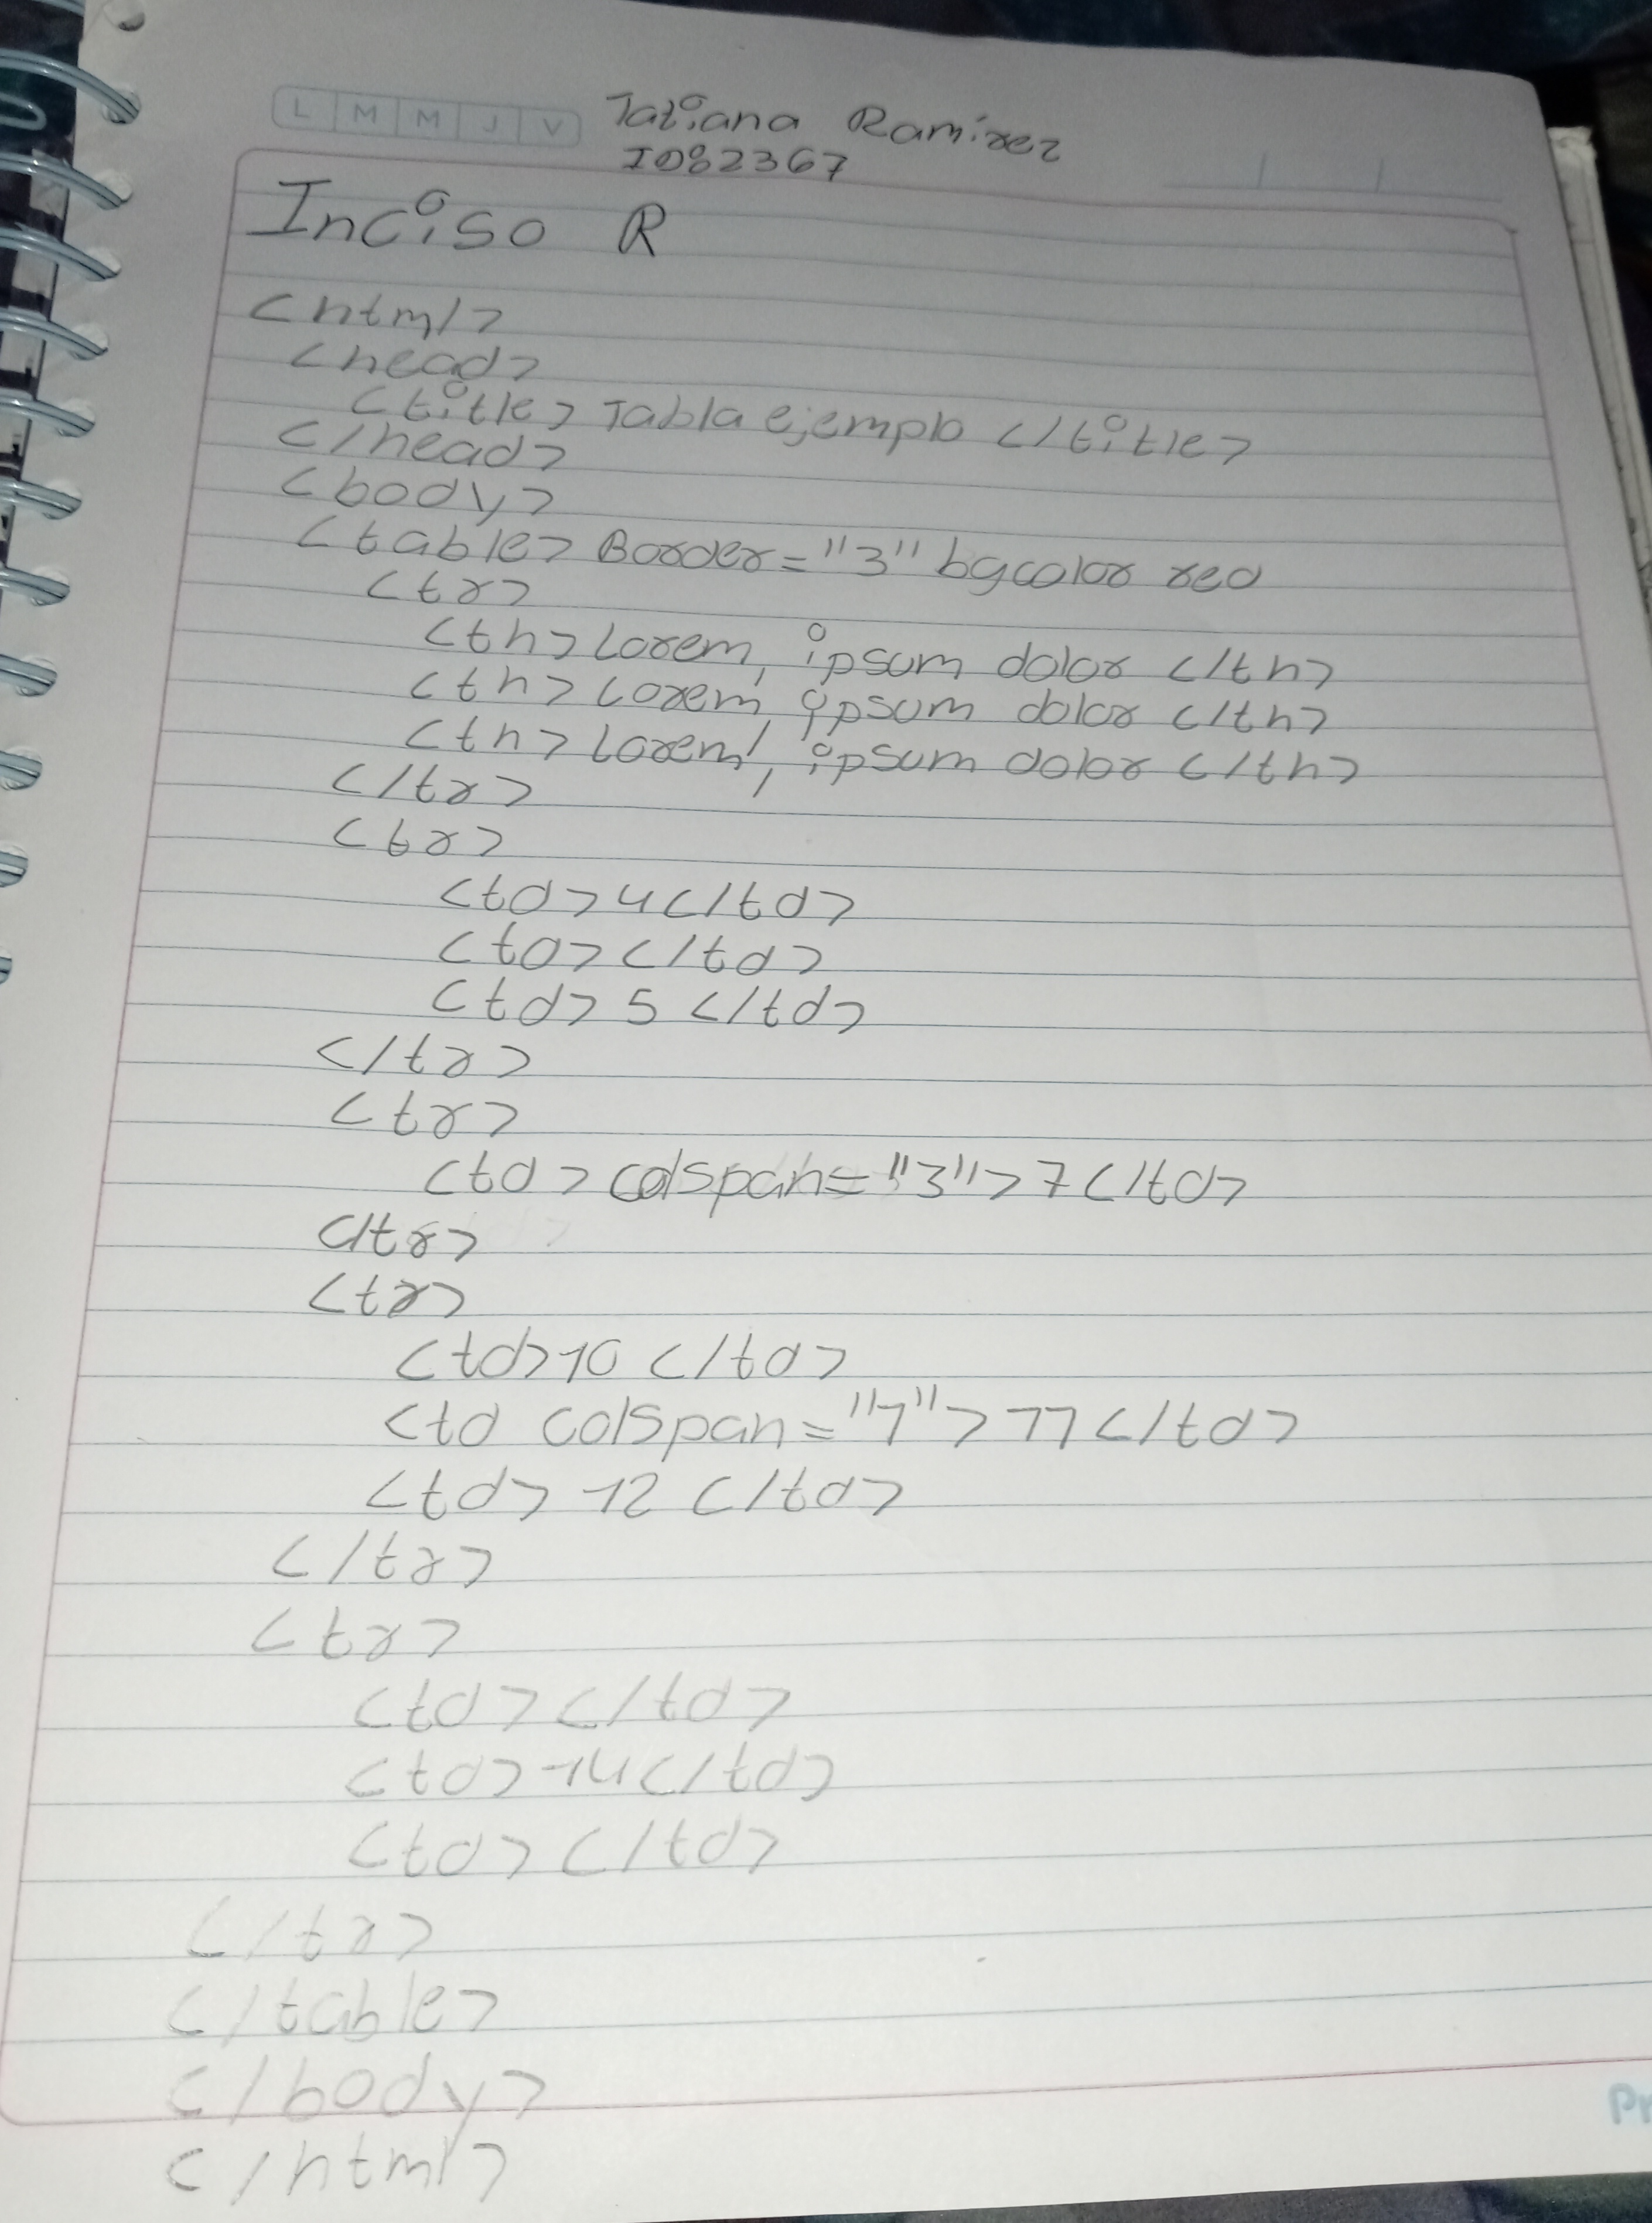 L M M J V
Tatiana Ramirez
ID82367
Inciso R
<html>
<head>
<title> Tabla ejemplo </title>
</head>
<body>
<table> Border="3" bgcolor red
<tr>
<th> Lorem, ipsum dolor </th>
<th> Lorem, ipsum dolor </th>
<th> Lorem, ipsum dolor </th>
</tr>
<tr>
<td>4</td>
<td></td>
<td>5</td>
</tr>
<tr>
<td> colspan="3">7</td>
</tr>
<tr>
<td>10</td>
<td colspan="1">11</td>
<td>12</td>
</tr>
<tr>
<td></td>
<td>14</td>
<td></td>
</tr>
</table>
</body>
</html>